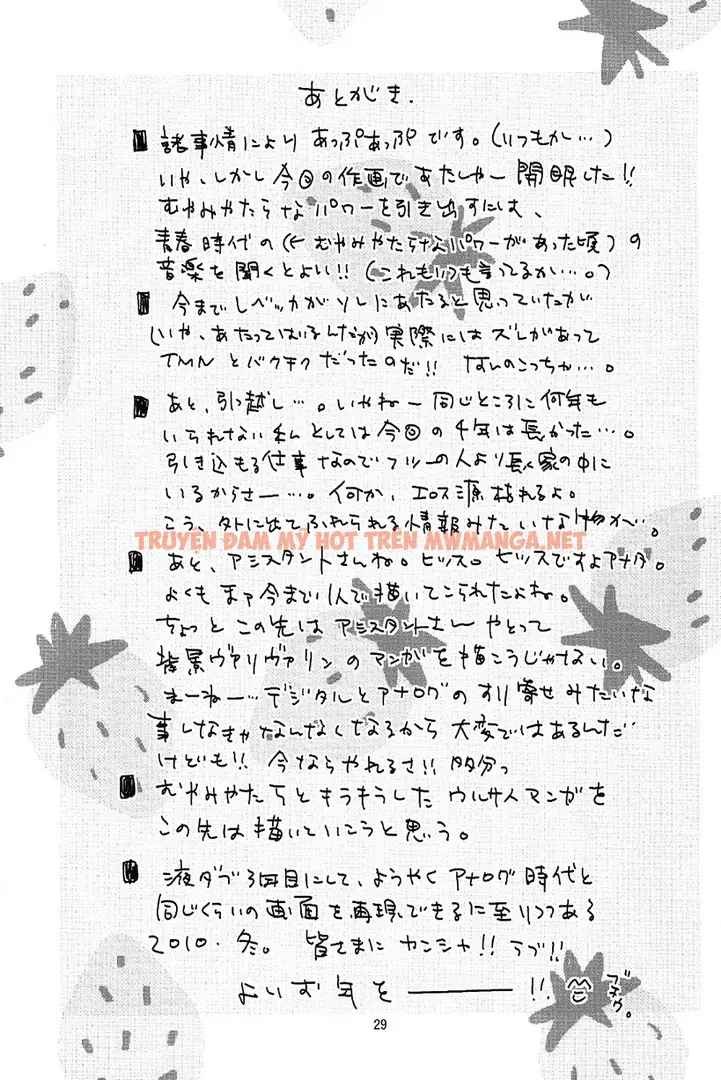 あとがき.
諸事情により あっぷあっぷです。(いつもか…)
いや、しかし今回の作画であたしゃー開眼した!!
むやみやたらなパワーを引き出すには、
青春時代の(← むやみやたらなパワーがあった頃)の
音楽を聞くとよい!! (これもいつも言ってるか…。)
今までレベッカがソレにあたると思っていたが
(いや、あたってはいるんだが)実際にはズレがあって
TMNとバクチクだったのだ!! なんのこっちゃ…。
あと、引っ越し…。いやねー同じところに何年も
いられない私としては今回の4年は長かった…。
引き込もる仕事なのでフツーの人より長く家の中に
いるからさー…。何か、エロス源枯れるよ。
こう、外に出てふれられる情報みたいな物が…。
TRUYỆN ĐAM MỸ HOT TRÊN MWMANGA.NET
あと、アシスタントさんね。ヒッス。ヒッスですよアナタ。
よくもまァ今まで1人で描いてこられたよね。
ちょっとこの先はアシスタントさんやとって
背景ヴァリヴァリンのマンガを描こうじゃない。
まーねー…デジタルとアナログのすり寄せみたいな
事しなきゃなんなくなるから大変ではあるんだ…
けども!! 今ならやれるさ!! 多分っ
むやみやたらとキラキラしたウルサイマンガを
この先は描いていこうと思う。
液タブ3回目にして、ようやくアナログ時代と
同じくらいの画面を再現できるに至りつつある
2010・冬。 皆さまにカンシャ!! ラブ!!
よいお年を―――!!
29